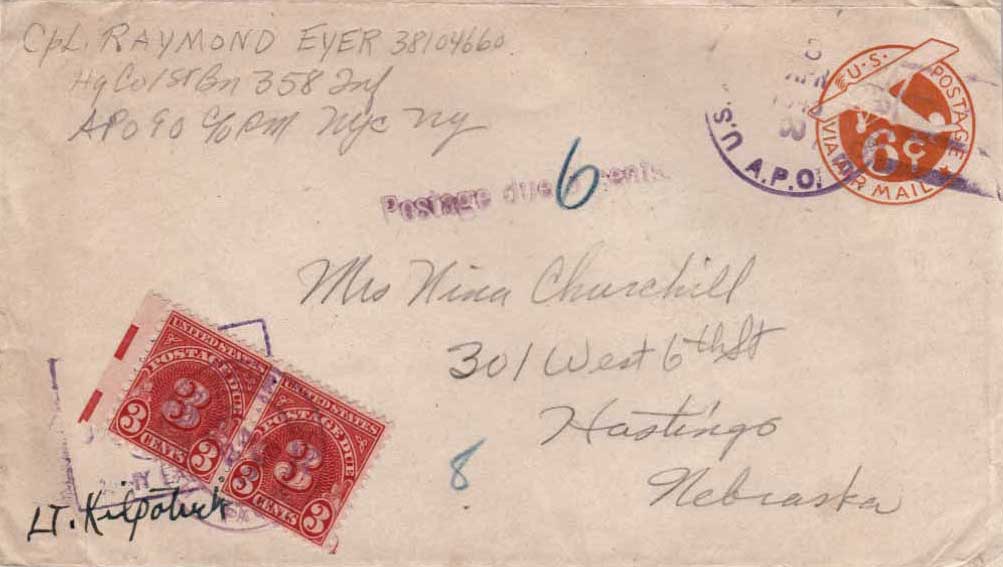 Cpl. RAYMOND EYER 38104660
Hq Co 1st Bn 358 Inf
APO 90 c/o PM NYC NY
U.S. POSTAGE
6¢
VIA AIR MAIL
APR
U.S. A.P.O.
Postage due 6 cents
Mrs Nina Churchill
301 West 6th St
Hastings
Nebraska
UNITED STATES
POSTAGE DUE
3
3 CENTS 3
UNITED STATES
POSTAGE DUE
3
3 CENTS 3
8
LT. Kilpatrick